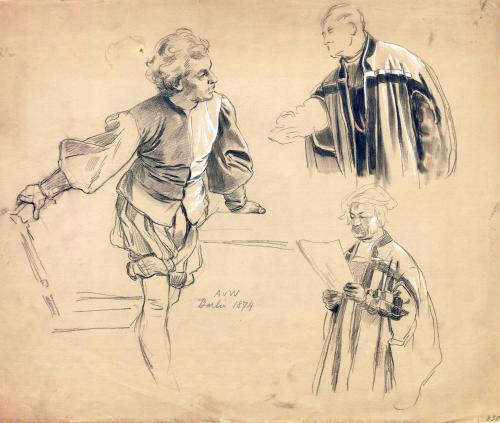 AvW
Berlin 1874